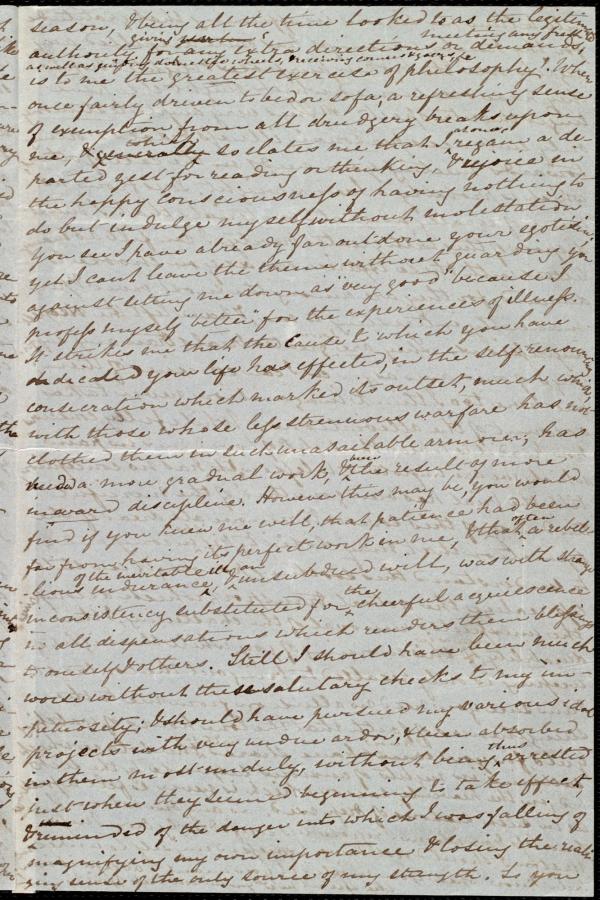 season, & being all the time looked to as the legitimate
giving meeting any fresh
authority for any extra directions or demands,
as well as going down stairs to meals, & receiving company
is to me the greatest exercise of philosophy! When
once fairly driven to bed or sofa, a refreshing sense
of exemption from all drudgery breaks upon
me, & generally so elates me that I regain a de-
parted zest for reading or thinking, & rejoice in
the happy consciousness of having nothing to
do but indulge myself without molestation
You see I have already far outdone your egotism,
yet I can't leave the theme without guarding you
against setting me down as "very good" because I
profess myself "better" for the experiences of illness.
It strikes me that the cause to which you have
dedicated your life has effected, in the self-renouncing
consecration which marked its outset, much which,
with those whose less strenuous warfare has not
clothed them in such unassailable armour, has
been
needed a more gradual work, & the result of more
inward discipline. However this may be, you would
find if you knew me well, that patience had been
of often
far from having its perfect work in me, & that a rebel-
of the inevitable ill, an
lious endurance, & unsubdued will, was with strange
the
inconsistency substituted for cheerful acquiescence
in all dispensations which renders them blessings
to oneself & others. Still I should have been much
worse without these salutary checks to my im-
petuosity; I should have pursued my various idol
projects with very undue ardor, & been absorbed
thus
in them most unduly, without being arrested
just when they seemed beginning to take effect,
& reminded of the danger into which I was falling of
magnifying my own importance & losing the reali-
zing sense of the only source of my strength. So you